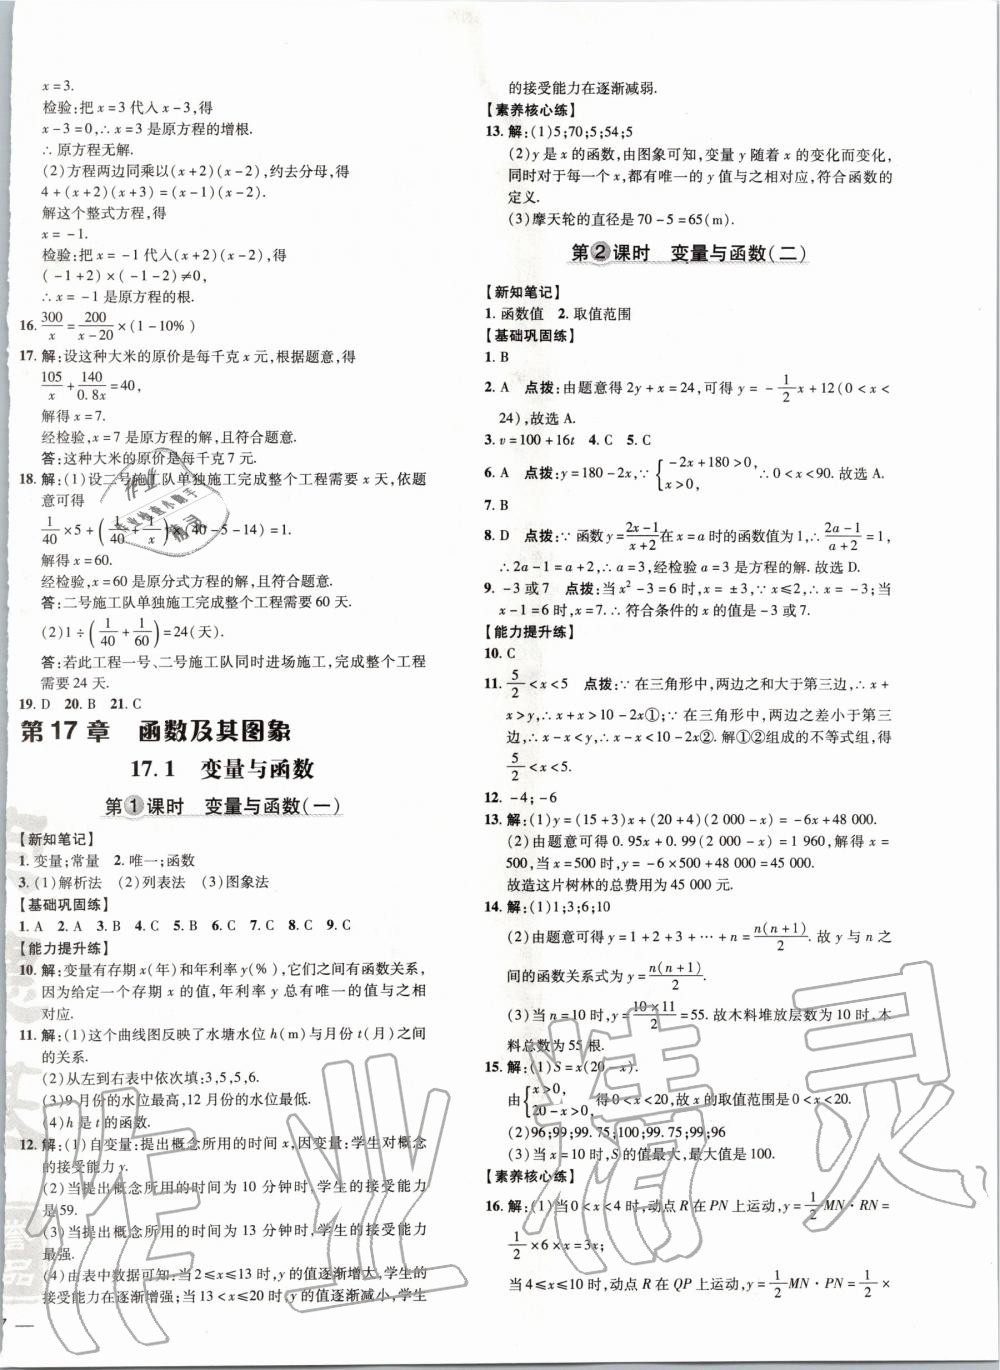 x=3.
检验:把 x=3 代入 x-3,得
x-3=0,∴x=3 是原方程的增根.
∴原方程无解.
(2)方程两边同乘以(x+2)(x-2),约去分母,得
4+(x+2)(x+3)=(x-1)(x-2).
解这个整式方程,得
x=-1.
检验:把 x=-1 代入(x+2)(x-2),得
(-1+2)×(-1-2)≠0,
∴x=-1 是原方程的根.
16. 300/x=200/(x-20)×(1-10%)
17. 解:设这种大米的原价是每千克 x 元,根据题意,得
105/x+140/0.8x=40,
解得 x=7.
经检验,x=7 是原方程的解,且符合题意.
答:这种大米的原价是每千克 7 元.
18. 解:(1)设二号施工队单独施工完成整个工程需要 x 天,依题
意可得
1/40×5+(1/40+1/x)×(40-5-14)=1.
解得 x=60.
经检验,x=60 是原分式方程的解,且符合题意.
答:二号施工队单独施工完成整个工程需要 60 天.
(2)1÷(1/40+1/60)=24(天).
答:若此工程一号、二号施工队同时进场施工,完成整个工程
需要 24 天.
19. D 20. B 21. C
第 17 章 函数及其图象
17.1 变量与函数
第1课时 变量与函数(一)
【新知笔记】
1. 变量;常量 2. 唯一;函数
3. (1)解析法 (2)列表法 (3)图象法
【基础巩固练】
1. A 2. A 3. B 4. C 5. B 6. C 7. C 8. C 9. C
【能力提升练】
10. 解:变量有存期 x(年)和年利率 y(%),它们之间有函数关系,
因为给定一个存期 x 的值,年利率 y 总有唯一的值与之相
对应.
11. 解:(1)这个曲线图反映了水塘水位 h(m)与月份 t(月)之间
的关系.
(2)从左到右表中依次填:3,5,5,6.
(3)9 月份的水位最高,12 月份的水位最低.
(4)h 是 t 的函数.
12. 解:(1)自变量:提出概念所用的时间 x,因变量:学生对概念
的接受能力 y.
(2)当提出概念所用的时间为 10 分钟时,学生的接受能力
是59.
(3)当提出概念所用的时间为 13 分钟时,学生的接受能力
最强.
(4)由表中数据可知:当 2≤x≤13 时,y 的值逐渐增大,学生的
接受能力在逐渐增强;当 13<x≤20 时,y 的值逐渐减小,学生
的接受能力在逐渐减弱.
【素养核心练】
13. 解:(1)5;70;5;54;5
(2)y 是 x 的函数,由图象可知,变量 y 随着 x 的变化而变化,
同时对于每一个 x,都有唯一的 y 值与之相对应,符合函数的
定义.
(3)摩天轮的直径是 70-5=65(m).
第2课时 变量与函数(二)
【新知笔记】
1. 函数值 2. 取值范围
【基础巩固练】
1. B
2. A 点拨:由题意得 2y+x=24,可得 y=-1/2x+12(0<x<
24),故选 A.
3. v=100+16t 4. C 5. C
6. A 点拨:y=180-2x,∵{-2x+180>0,x>0,∴0<x<90. 故选 A.
7. B
8. D 点拨:∵函数 y=(2x-1)/(x+2)在 x=a 时的函数值为1,∴(2a-1)/(a+2)=1,
∴2a-1=a+2,∴a=3,经检验 a=3 是方程的解. 故选 D.
9. -3或7 点拨:当 x²-3=6 时,x=±3,∵x≤2,∴x=-3;当
x-1=6 时,x=7.∴符合条件的 x 的值是-3 或 7.
【能力提升练】
10. C
11. 5/2<x<5 点拨:∵在三角形中,两边之和大于第三边,∴x+
x>y,∴x+x>10-2x①;∵在三角形中,两边之差小于第三
边,∴x-x<y,∴x-x<10-2x②. 解①②组成的不等式组,得
5/2<x<5.
12. -4;-6
13. 解:(1)y=(15+3)x+(20+4)(2 000-x)=-6x+48 000.
(2)由题意可得 0.95x+0.99(2 000-x)=1 960,解得 x=
500,当 x=500 时,y=-6×500+48 000=45 000.
故造这片树林的总费用为 45 000 元.
14. 解:(1)1;3;6;10
(2)由题意可得 y=1+2+3+…+n=n(n+1)/2. 故 y 与 n 之
间的函数关系式为 y=n(n+1)/2.
(3)当 n=10 时,y=10×11/2=55. 故木料堆放层数为 10 时,木
料总数为 55 根.
15. 解:(1)S=x(20-x).
由{x>0,20-x>0,得 0<x<20,故 x 的取值范围是 0<x<20.
(2)96;99;99.75;100;99.75;99;96
(3)当 x=10 时,S 的值最大,最大值是 100.
【素养核心练】
16. 解:(1)当 0<x<4 时,动点 R 在 PN 上运动,y=1/2MN·RN=
1/2×6×x=3x;
当 4≤x≤10 时,动点 R 在 QP 上运动,y=1/2MN·PN=1/2×
作业精灵